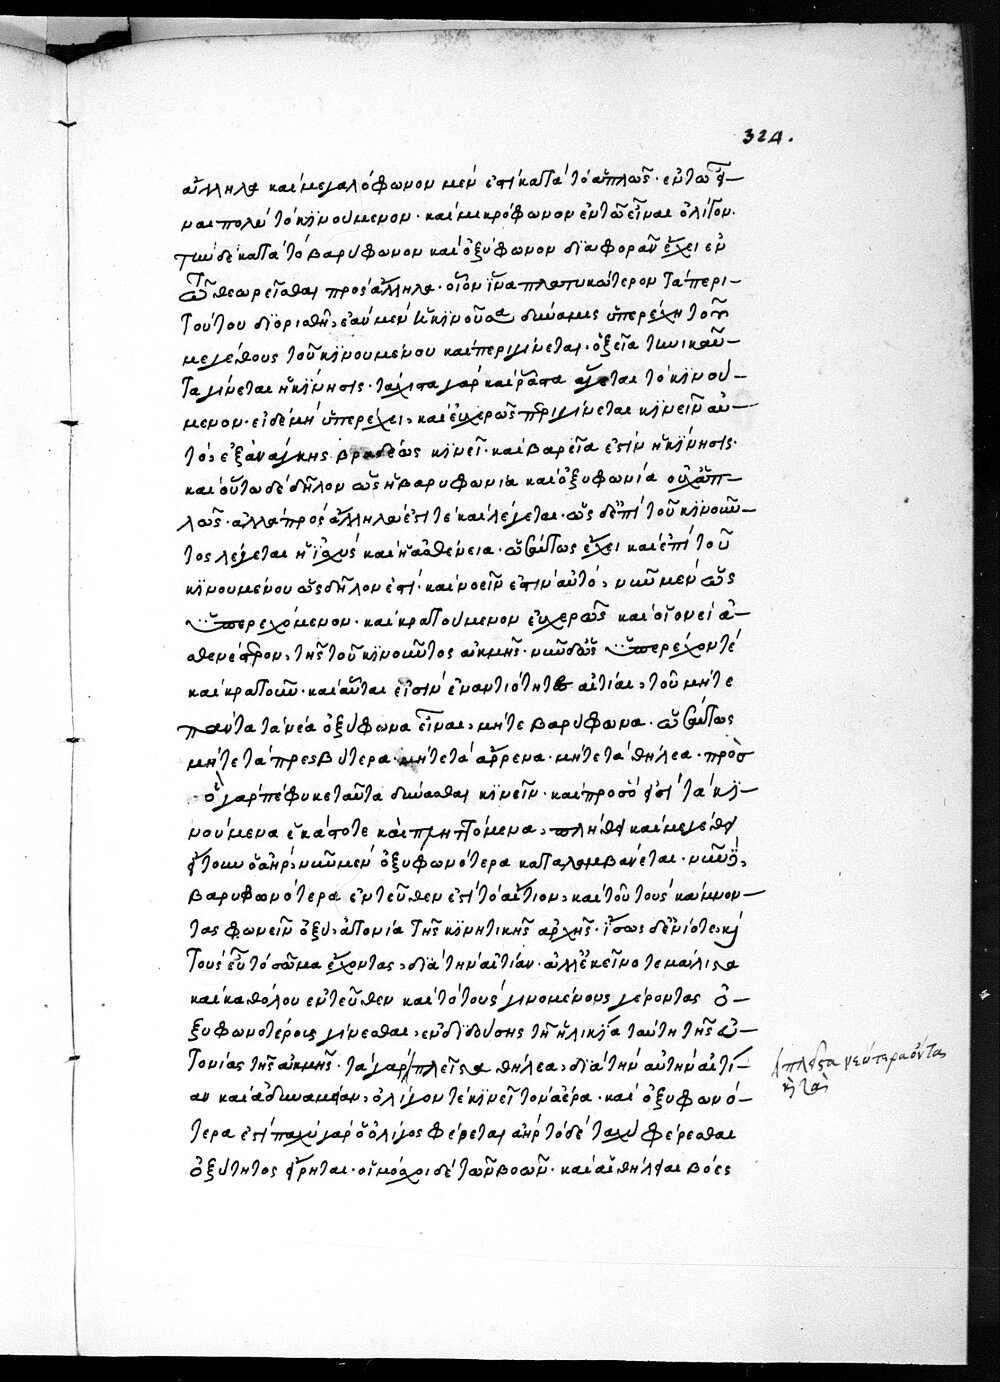 324.
ἄλληλα καὶ μεγαλόφωνον μέν ἐστι κατὰ τὸ ἁπλῶς· ἐν τῶ εἶ-
ναι πολὺ τὸ κινούμενον· καὶ μικρόφωνον ἐν τῶ εἶναι ὀλίγον·
τὴν δὲ κατὰ τὸ βαρύφωνον καὶ ὀξύφωνον διαφορὰν ἔχει ἐν
τῶ θεωρεῖσθαι πρὸς ἄλληλα· οἷον ἵνα πλατυκώτερον τὰ περὶ
τούτου διορισθῆ, ἐὰν μὲν ἡ κινοῦσα δύναμις ὑπερέχη τοῦ
μεγέθους τοῦ κινουμένου καὶ περιγίνεται· ὀξεῖα τηνικαῦ-
τα γίνεται ἡ κίνησις· τάχιστα γὰρ καὶ ῥᾶστα ἄγεται τὸ κινού-
μενον· εἰ δὲ μὴ ὑπερέχει, καὶ εὐχερῶς περιγίνεται κινεῖν αὐ-
τό, ἐξ ἀνάγκης βραδέως κινεῖ· καὶ βαρεῖα ἐστὶν ἡ κίνησις·
καὶ οὕτω δὲ δῆλον ὡς ἡ βαρυφωνία καὶ ὀξυφωνία οὐχ ἁπ-
λῶς· ἀλλὰ πρὸς ἄλληλα ἐστί τε καὶ λέγεται· ὡς δ' ἐπὶ τοῦ κινοῦν-
τος λέγεται ἡ ἰσχὺς καὶ ἡ ἀσθένεια· ὡσαύτως ἔχει καὶ ἐπὶ τοῦ
κινουμένου ὡς δῆλον ἐστί· καὶ νοεῖν ἐστὶν αὐτό, νῦν μὲν ὡς
ὑπερεχόμενον· καὶ κρατούμενον εὐχερῶς καὶ οἱονεὶ ἀ-
σθενέστερον, τῆς τοῦ κινοῦντος ἀκμῆς· νῦν δ' ὡς ὑπερέχον τέ
καὶ κρατοῦν· καὶ αὗται εἰσὶν ἐναντιότητες αἰτίαι, τοῦ μήτε
πάντα τὰ νέα ὀξύφωνα εἶναι, μήτε βαρύφωνα· ὡσαύτως
μήτε τὰ πρεσβύτερα· μήτε τὰ ἄρρενα· μήτε τὰ θήλεα· πρὸς
ὃ γὰρ πέφυκε ταῦτα δύνασθαι κινεῖν· καὶ πρὸς ὅ ἐστι τὰ κι-
νούμενα ἑκάστοτε καὶ πλήθει καὶ μεγέθει
ἤτοι ὁ ἀὴρ, νῦν μὲν ὀξυφωνότερα καταλαμβάνεται· νῦν δὲ,
βαρυφωνότερα ἐντεῦθεν ἐστὶ τὸ αἴτιον, καὶ τοῦ τοὺς κάμνον-
τας φωνεῖν ὀξύ, ἀτονία τῆς κινητικῆς ἀρχῆς· ἴσως δ' ἐνίοτε, καὶ
τοὺς εὖ τὸ σῶμα ἔχοντας, διὰ τὴν αἰτίαν· ἀλλ' ἐκεῖνο τε μάλιστα
καὶ καθόλου ἐντεῦθεν καὶ τὸ τοὺς γινομένους γέροντας ὀ-
ξυφωνοτέροις γίνεσθαι, ἐνδιδούσης τῆ ἡλικία ταύτη τῆς εὐ-
τονίας τῆς ἀκμῆς· τὰ γὰρ πλεῖστα θήλεα, διὰ τὴν αὐτὴν αἰτί-
αν καὶ ἀδυναμίαν, ὀλίγον τὲ κινεῖ τὸν ἀέρα· καὶ ὀξυφωνό-
τερα ἐστί ταχὺ γὰρ ὁ ὀλίγος φέρεται ἀήρ τὸ δὲ ταχὺ φέρεσθαι
ὀξύτητος εἴρηται· οἱ μόσχοι δὲ τῶν βοῶν· καὶ αἱ θήλειαι βόες
πλεῖστα νεώτερα ὄντα
καὶ τὰ